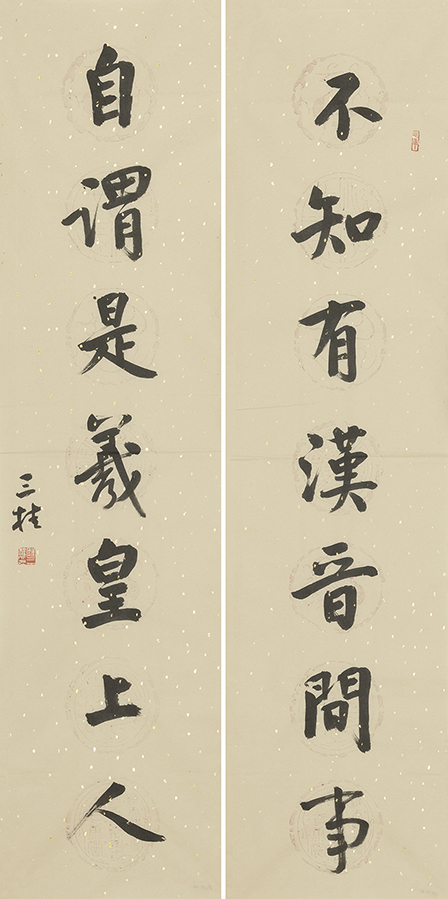 不知有漢晉間事
自謂是羲皇上人
三桂